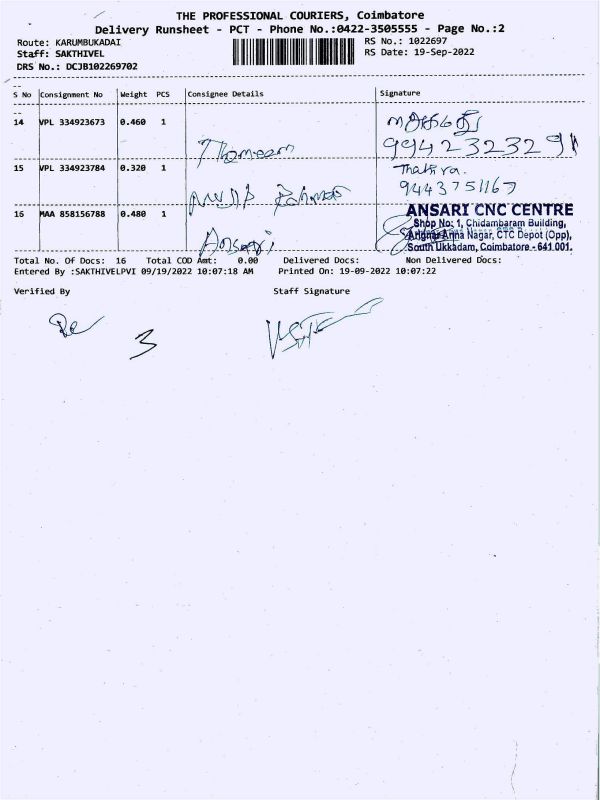 THE PROFESSIONAL COURIERS, Coimbatore
Delivery Runsheet - PCT - Phone No.:0422-3505555 - Page No.:2
Route: KARUMBUKADAI
RS No.: 1022697
Staff: SAKTHIVEL
RS Date: 19-Sep-2022
DRS No.: DCJB102269702
S No Consignment No Weight PCS Consignee Details Signature
14 VPL 334923673 0.460 1
Thameem
15 VPL 334923784 0.320 1
Thahira.
9443751167
Mujip Rahman
16 MAA 858156788 0.480 1
Ansari
ANSARI CNC CENTRE
Shop No: 1, Chidambaram Building,
Anna Nagar, CTC Depot (Opp),
South Ukkadam, Coimbatore - 641 001.
Total No. Of Docs: 16 Total COD Amt: 0.00 Delivered Docs: Non Delivered Docs:
Entered By :SAKTHIVELPVI 09/19/2022 10:07:18 AM Printed On: 19-09-2022 10:07:22
Verified By Staff Signature
3